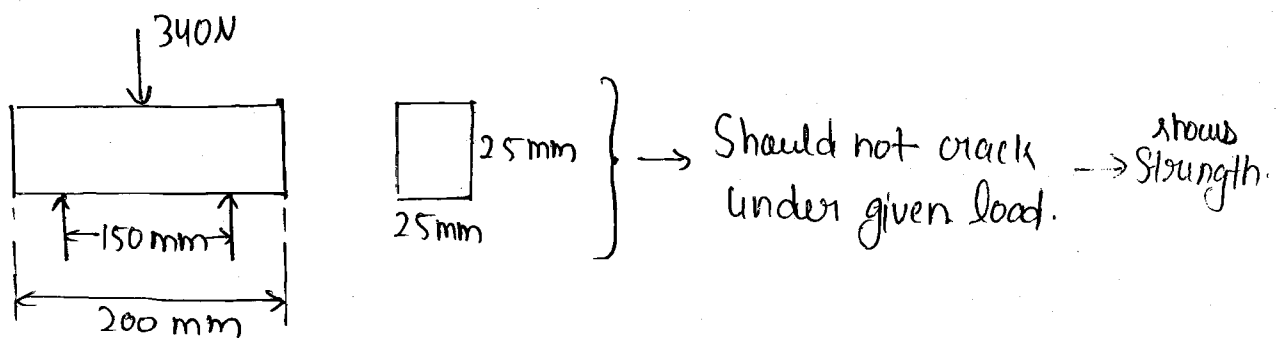 340N
25mm
25mm
150mm
200 mm
Should not crack
under given load.
shows
Strength.